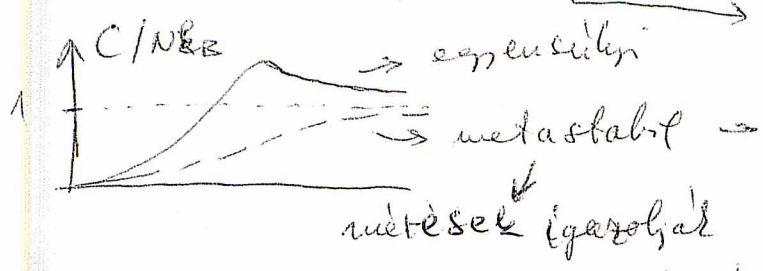 C/NkB → egyensúlyi
1
→ metastabil →
mérések igazolják